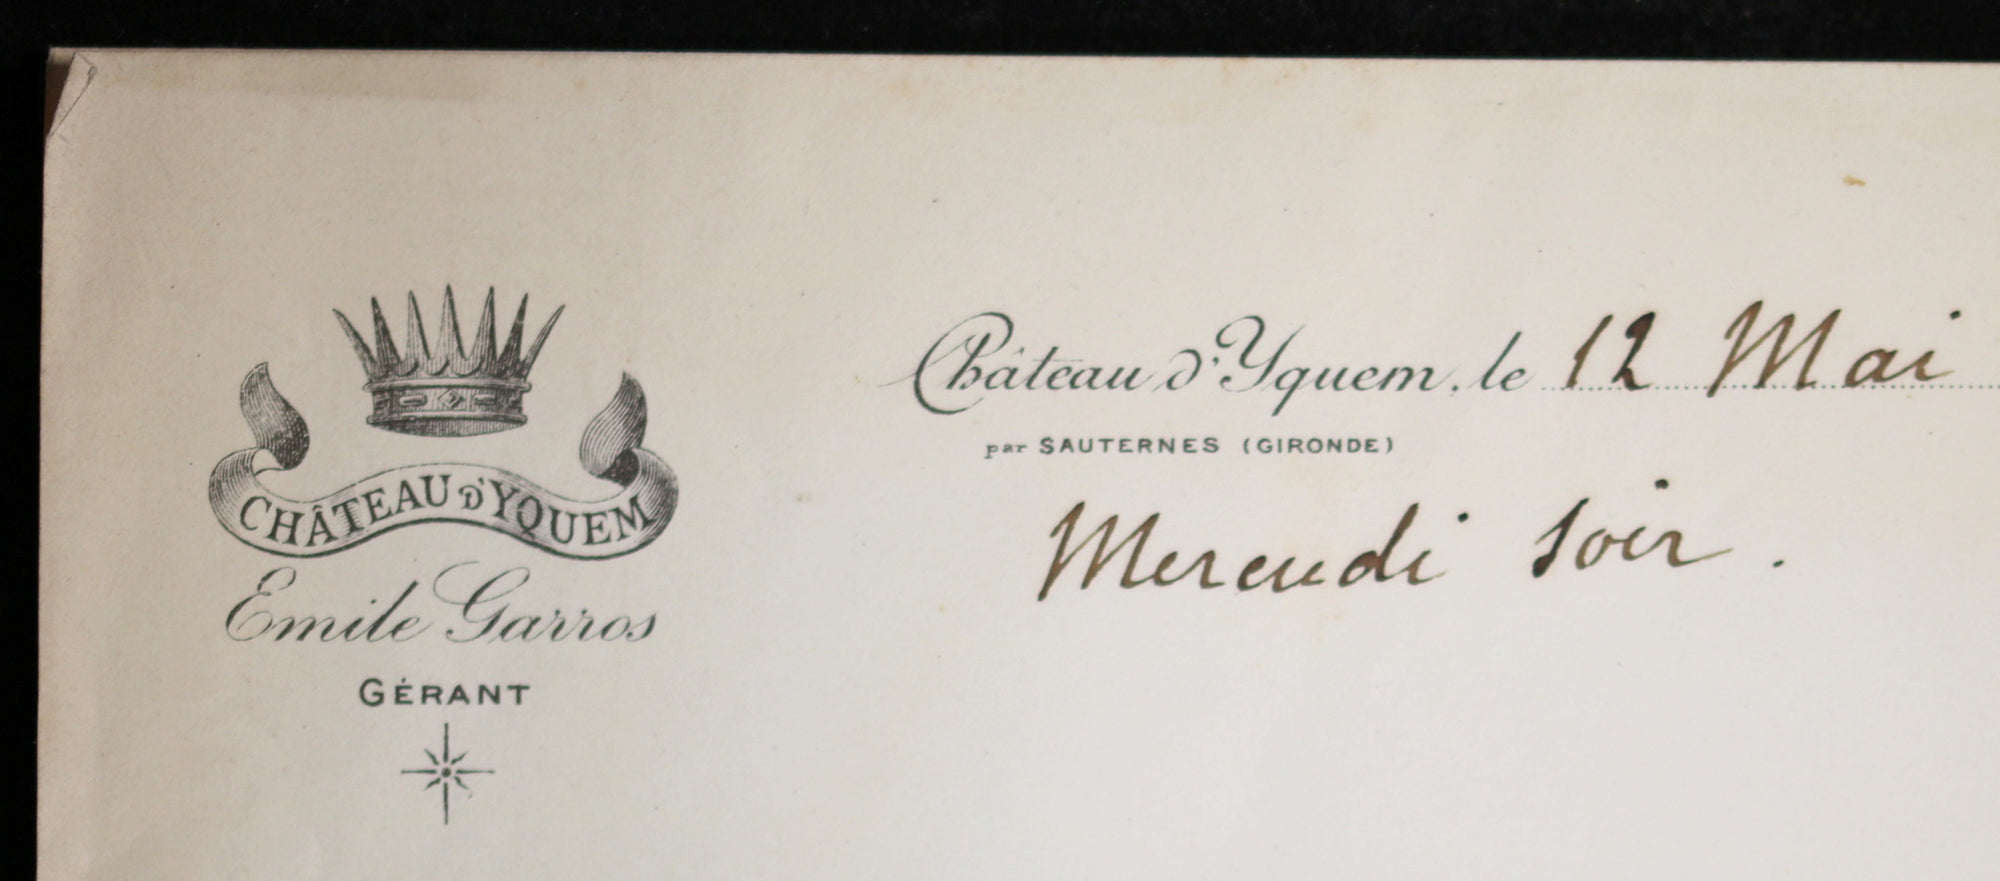 CHÂTEAU D'YQUEM
Emile Garros
GÉRANT
Château d'Yquem, le 12 Mai
par SAUTERNES (GIRONDE)
Mercudi soir.